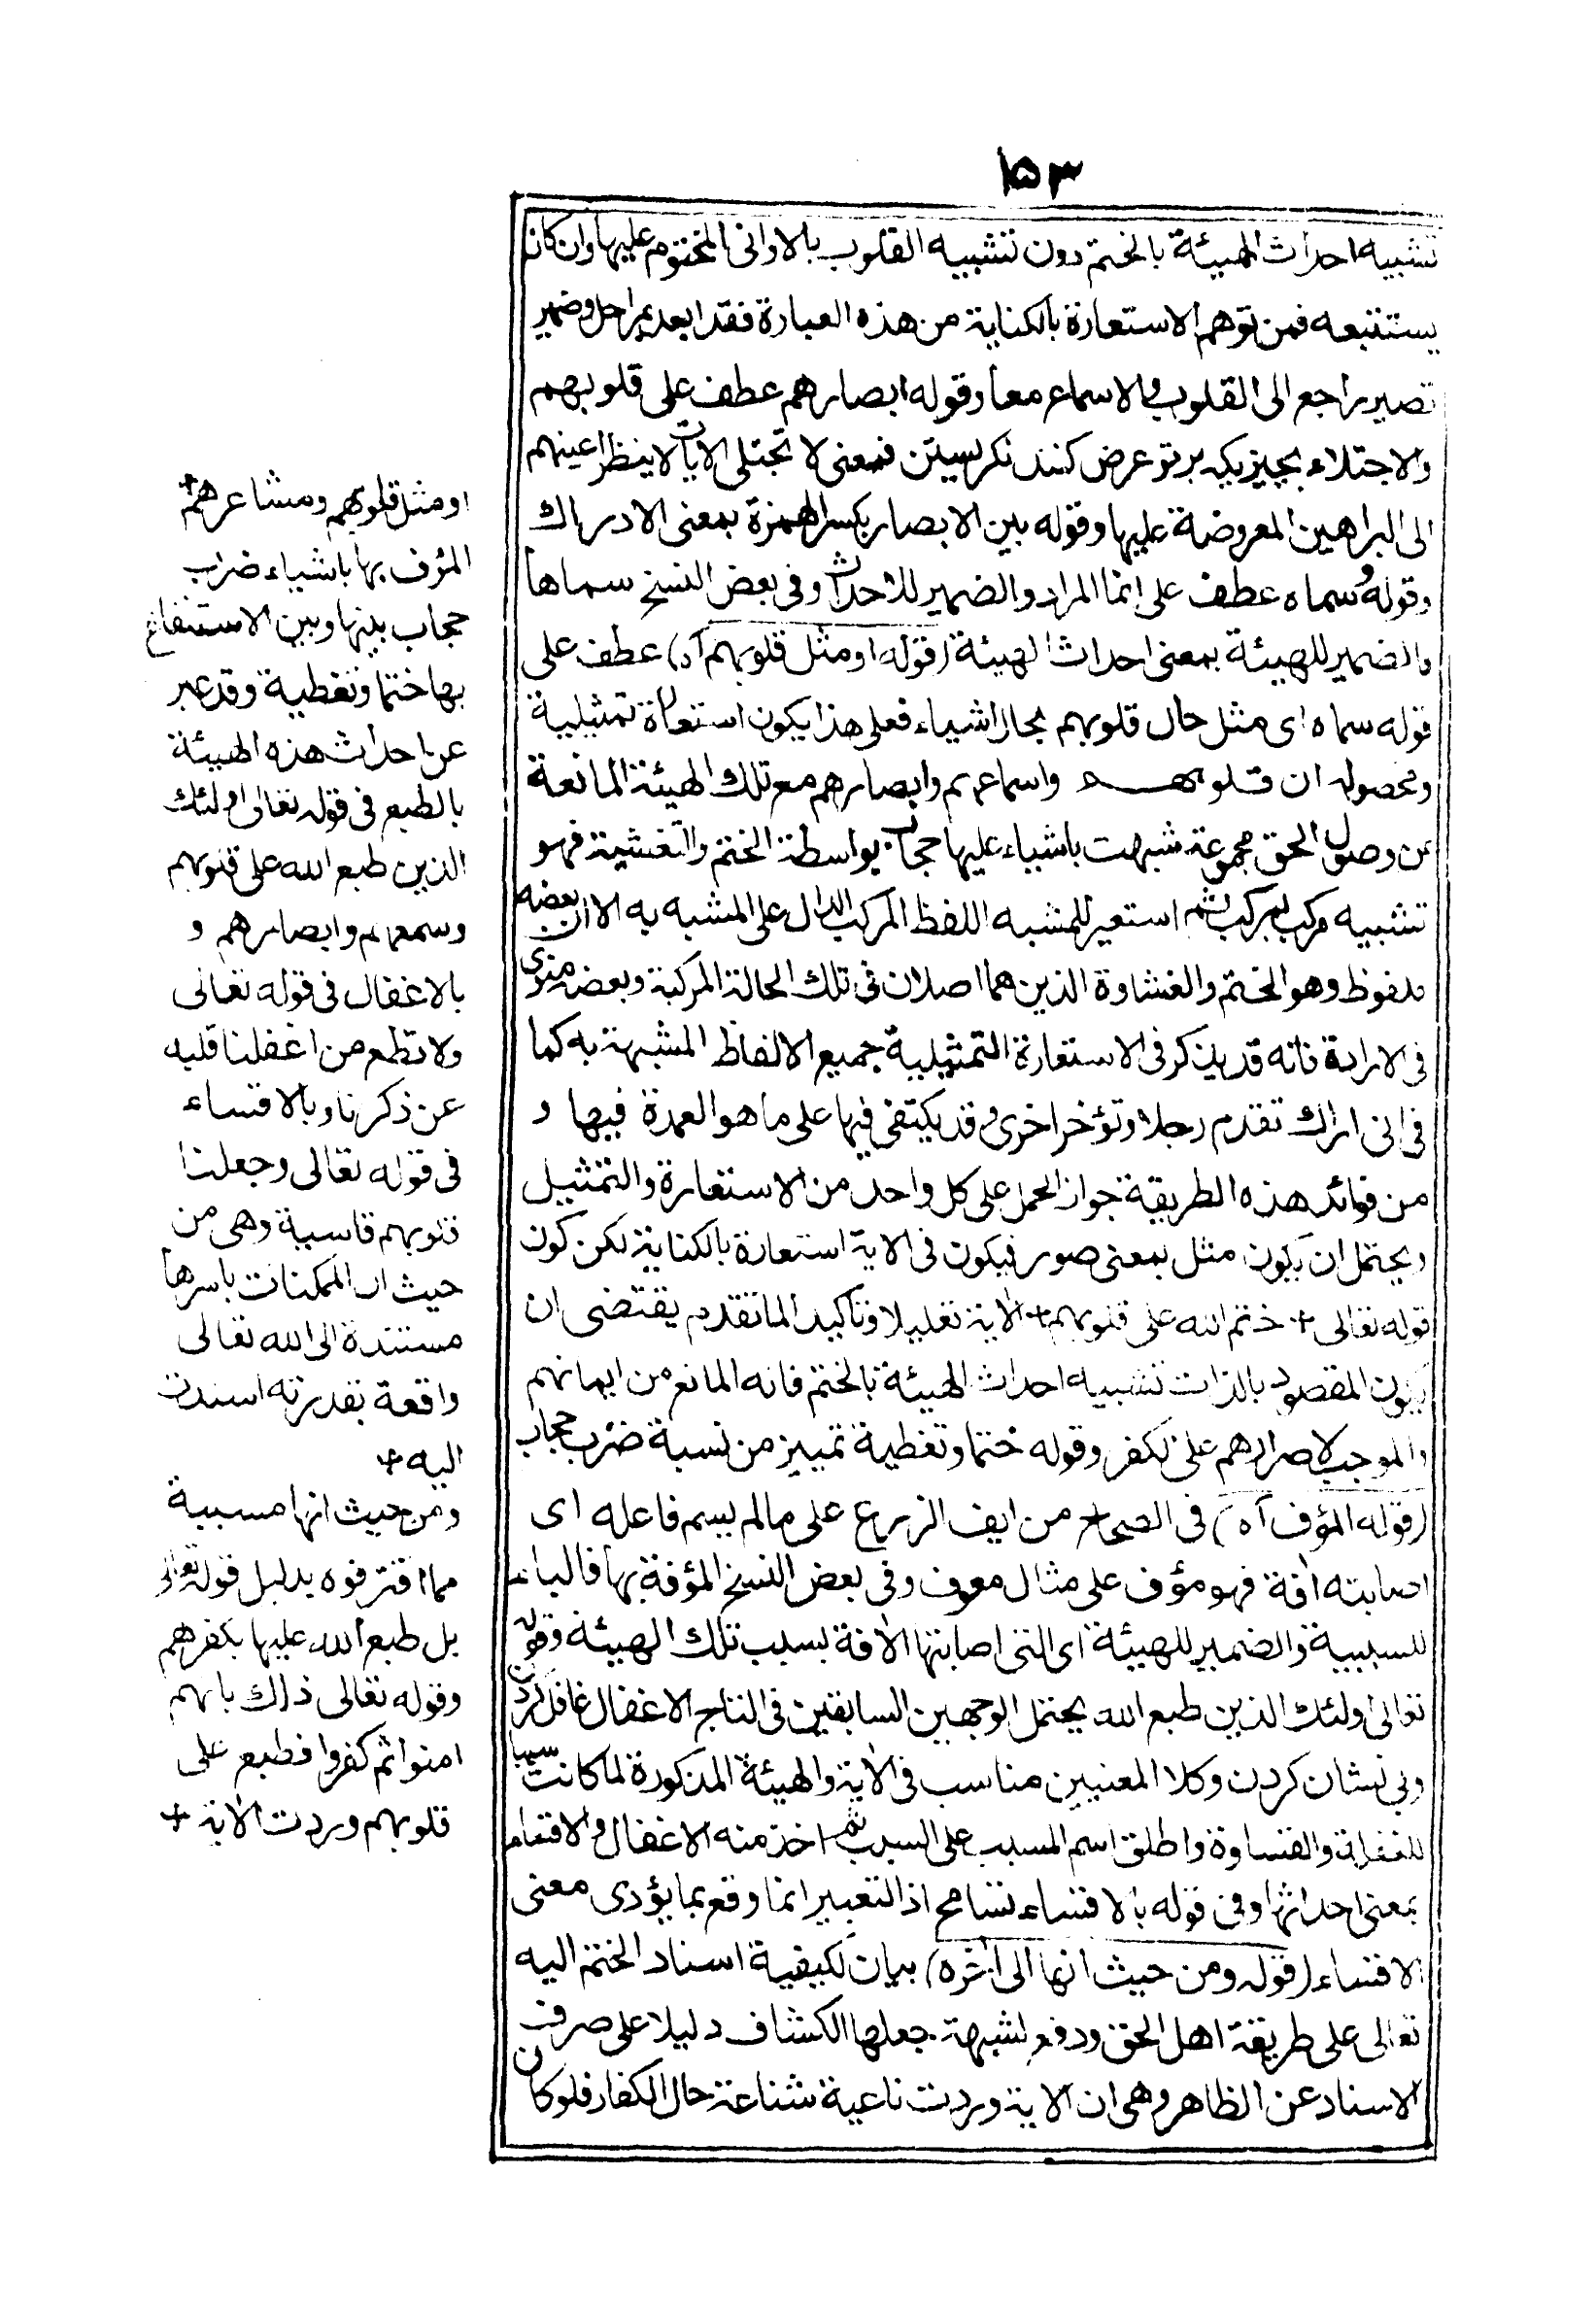 ١٥٣
تشبيه احداث الهيئة بالختم دون تشبيه القلوب بالاوانى المختوم عليها وان كان
يستتبعه فمن توهم الاستعارة بالكناية من هذه العبارة فقد ابعد بمراحل وضمير
تصير راجع الى القلوب والاسماع معا وقوله ابصارهم عطف على قلوبهم
والاجتلاء بچيزيكه بر تو عرض كنند نكريستن فمعنى لا تجتلى الايات لا ينظر اعينهم
الى البراهين المعروضة عليها وقوله بين الابصار بكسر الهمزة بمعنى الادراك
وقوله وسماه عطف على انما المراد والضمير للاحداث وفى بعض النسخ سماها
والضمير للهيئة بمعنى احداث الهيئة (قوله او مثل قلوبهم آه) عطف على
قوله سماه اى مثل حال قلوبهم بحال اشياء فعلى هذا يكون استعارة تمثيلية
ومحصوله ان قلوبهم واسماعهم وابصارهم مع تلك الهيئة المانعة
عن وصول الحق مجموعة شبهت باشياء عليها حجاب بواسطة الختم والتغشية فهو
تشبيه مركب بمركب ثم استعير للمشبه اللفظ المركب الدال على المشبه به الا ان بعضه
ملفوظ وهو الختم والغشاوة الذين هما اصلان فى تلك الحالة المركبة وبعضه منوى
فى الارادة فانه قد يذكر فى الاستعارة التمثيلية جميع الالفاظ المشبهة به كما
فى انى اراك تقدم رجلا وتؤخر اخرى وقد يكتفى فيها على ما هو العمدة فيها و
من فوائد هذه الطريقة جواز الحمل على كل واحد من الاستعارة والتمثيل
ويحتمل ان يكون مثل بمعنى صور فيكون فى الاية استعارة بالكناية لكن كون
قوله تعالى + ختم الله على قلوبهم + الاية تعليلا وتاكيدا لما تقدم يقتضى ان
يكون المقصود بالذات تشبيه احداث الهيئة بالختم فانه المانع من ايمانهم
والموجب لاصرارهم على الكفر وقوله ختما وتغطية تمييز من نسبة ضرب حجاب
(قوله المؤف آه) فى الصحاح من ايف الزرع على مالم يسم فاعله اى
اصابته افة فهو مؤف على مثال معوف وفى بعض النسخ المؤفة بها فالباء
للسببية والضمير للهيئة اى التى اصابتها الافة بسبب تلك الهيئة وقوله
تعالى اولئك الذين طبع الله يحتمل الوجهين السابقين فى التاج الاغفال غافل كردن
وبى نشان كردن وكلا المعنيين مناسب فى الاية والهيئة المذكورة لما كانت سببا
للغفلة والقساوة واطلق اسم المسبب على السبب ثم اخذ منه الاغفال والاقساء
بمعنى احداثها وفى قوله بالاقساء تسامح اذ التعبير انما وقع بما يؤدى معنى
الاقساء (قوله ومن حيث انها الى آخره) بيان لكيفية اسناد الختم اليه
تعالى على طريقة اهل الحق ودفع لشبهة جعلها الكشاف دليلا على صرف
الاسناد عن الظاهر وهى ان الاية وردت ناعية شناعة حال الكفار فلو كان
او مثل قلوبهم ومشاعرهم +
المؤف بها باشياء ضرب
حجاب بينها وبين الاستنفاع
بها ختما وتغطية وقد عبر
عن احداث هذه الهيئة
بالطبع فى قوله تعالى اولئك
الذين طبع الله على قلوبهم
وسمعهم وابصارهم و
بالاغفال فى قوله تعالى
ولا تطع من اغفلنا قلبه
عن ذكرنا وبالاقساء
فى قوله تعالى وجعلنا
قلوبهم قاسية وهى من
حيث ان الممكنات باسرها
مستندة الى الله تعالى
واقعة بقدرته اسندت
اليه +
ومن حيث انها مسببة
مما اقترفوه بدليل قوله تعالى
بل طبع الله عليها بكفرهم
وقوله تعالى ذلك بانهم
امنوا ثم كفروا فطبع على
قلوبهم وردت الاية +